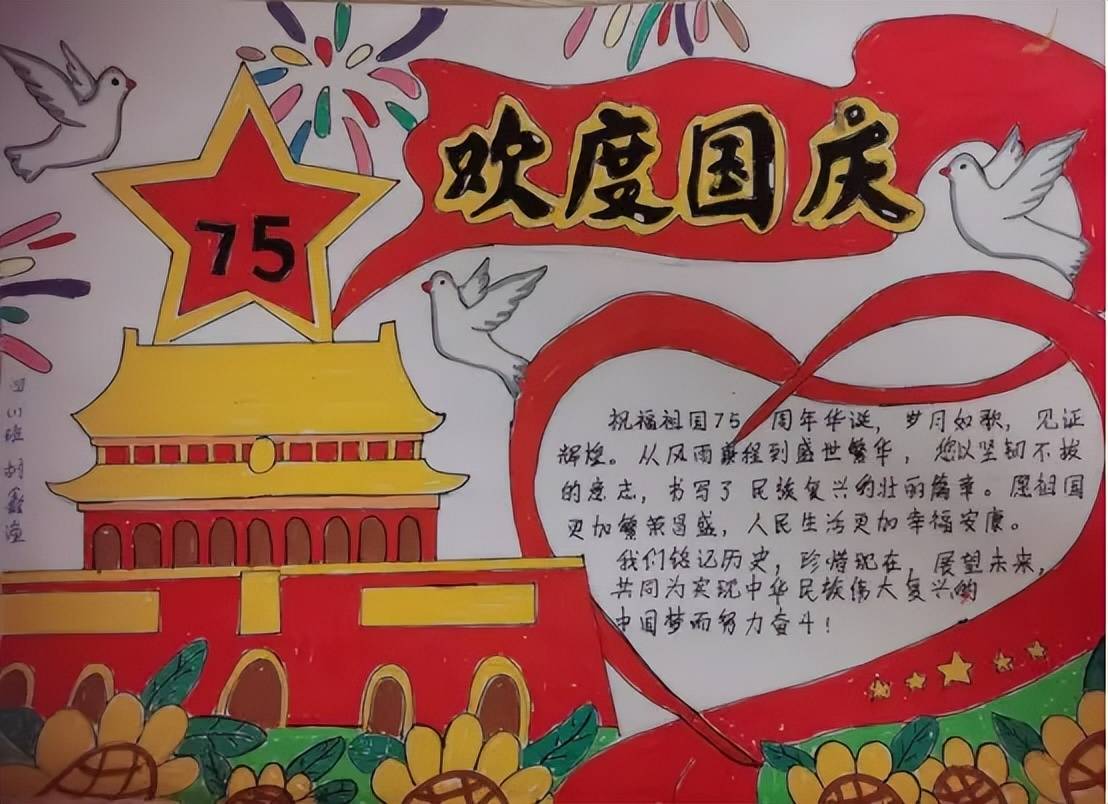 欢度国庆
75
祝福祖国75 周年华诞，岁月如歌，见证
辉煌。从风雨兼程到盛世繁华，您以坚韧不拔
的意志，书写了民族复兴的壮丽篇章。愿祖国
更加繁荣昌盛，人民生活更加幸福安康。
我们铭记历史，珍惜现在，展望未来，
共同为实现中华民族伟大复兴的
中国梦而努力奋斗！
班 胡鑫